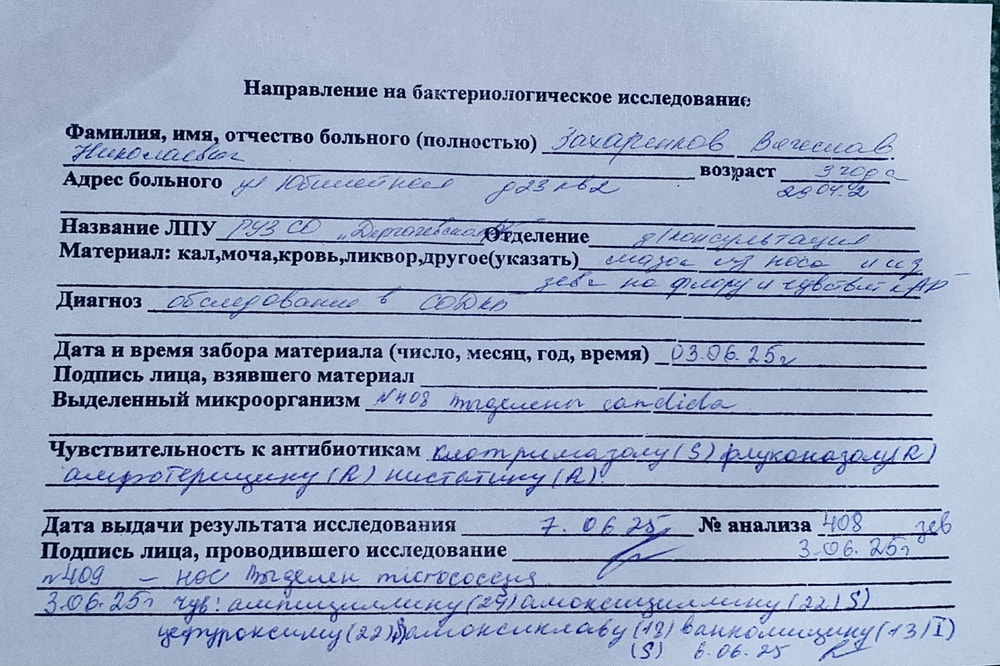 Направление на бактериологическое исследование
Фамилия, имя, отчество больного (полностью) Захаренков Вячеслав
Николаевич возраст 3 года
Адрес больного ул Юбилейная д23 кв2 29.04.2
Название ЛПУ ГУЗ СО „Дергачевская Отделение д/консультация
Материал: кал,моча,кровь,ликвор,другое(указать) мазок из носа и из
зева на флору и чувствит к АБ
Диагноз обследование в СОДКБ
Дата и время забора материала (число, месяц, год, время) 03.06.25г
Подпись лица, взявшего материал
Выделенный микроорганизм №408 Выделены candida
Чувствительность к антибиотикам клотримазолу (S) флуконазолу(R)
амфотерицину (R) нистатину (R).
Дата выдачи результата исследования 7.06.25г № анализа 408 зев
Подпись лица, проводившего исследование 3.06.25г
№409 – нос Выделен micrococcus
3.06.25г чув: ампициллину(29) амоксициллину (22)S)
цефуроксиму(22)S) амоксиклаву (18) ванкомицину(13)I)
(S) 6.06.25